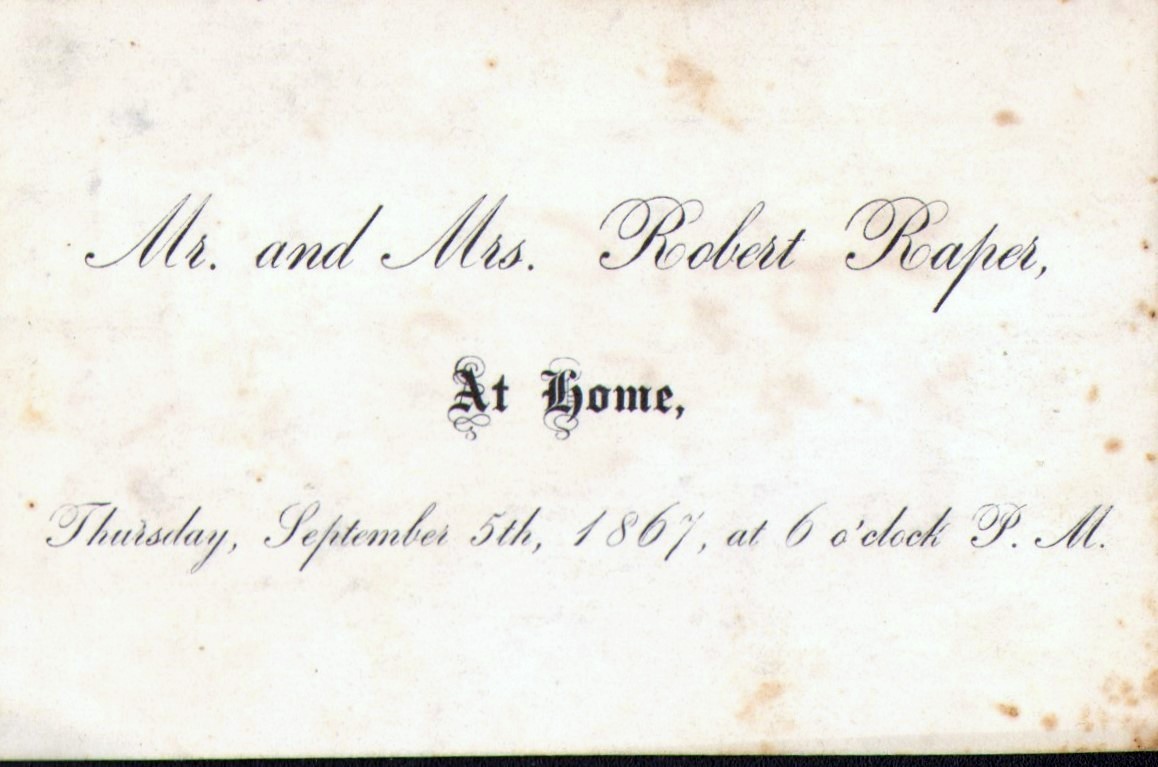 Mr. and Mrs. Robert Raper,
At Home,
Thursday, September 5th, 1867, at 6 o'clock P. M.